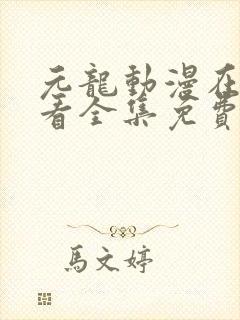 元龍動漫在
看全集免費
馬文婷